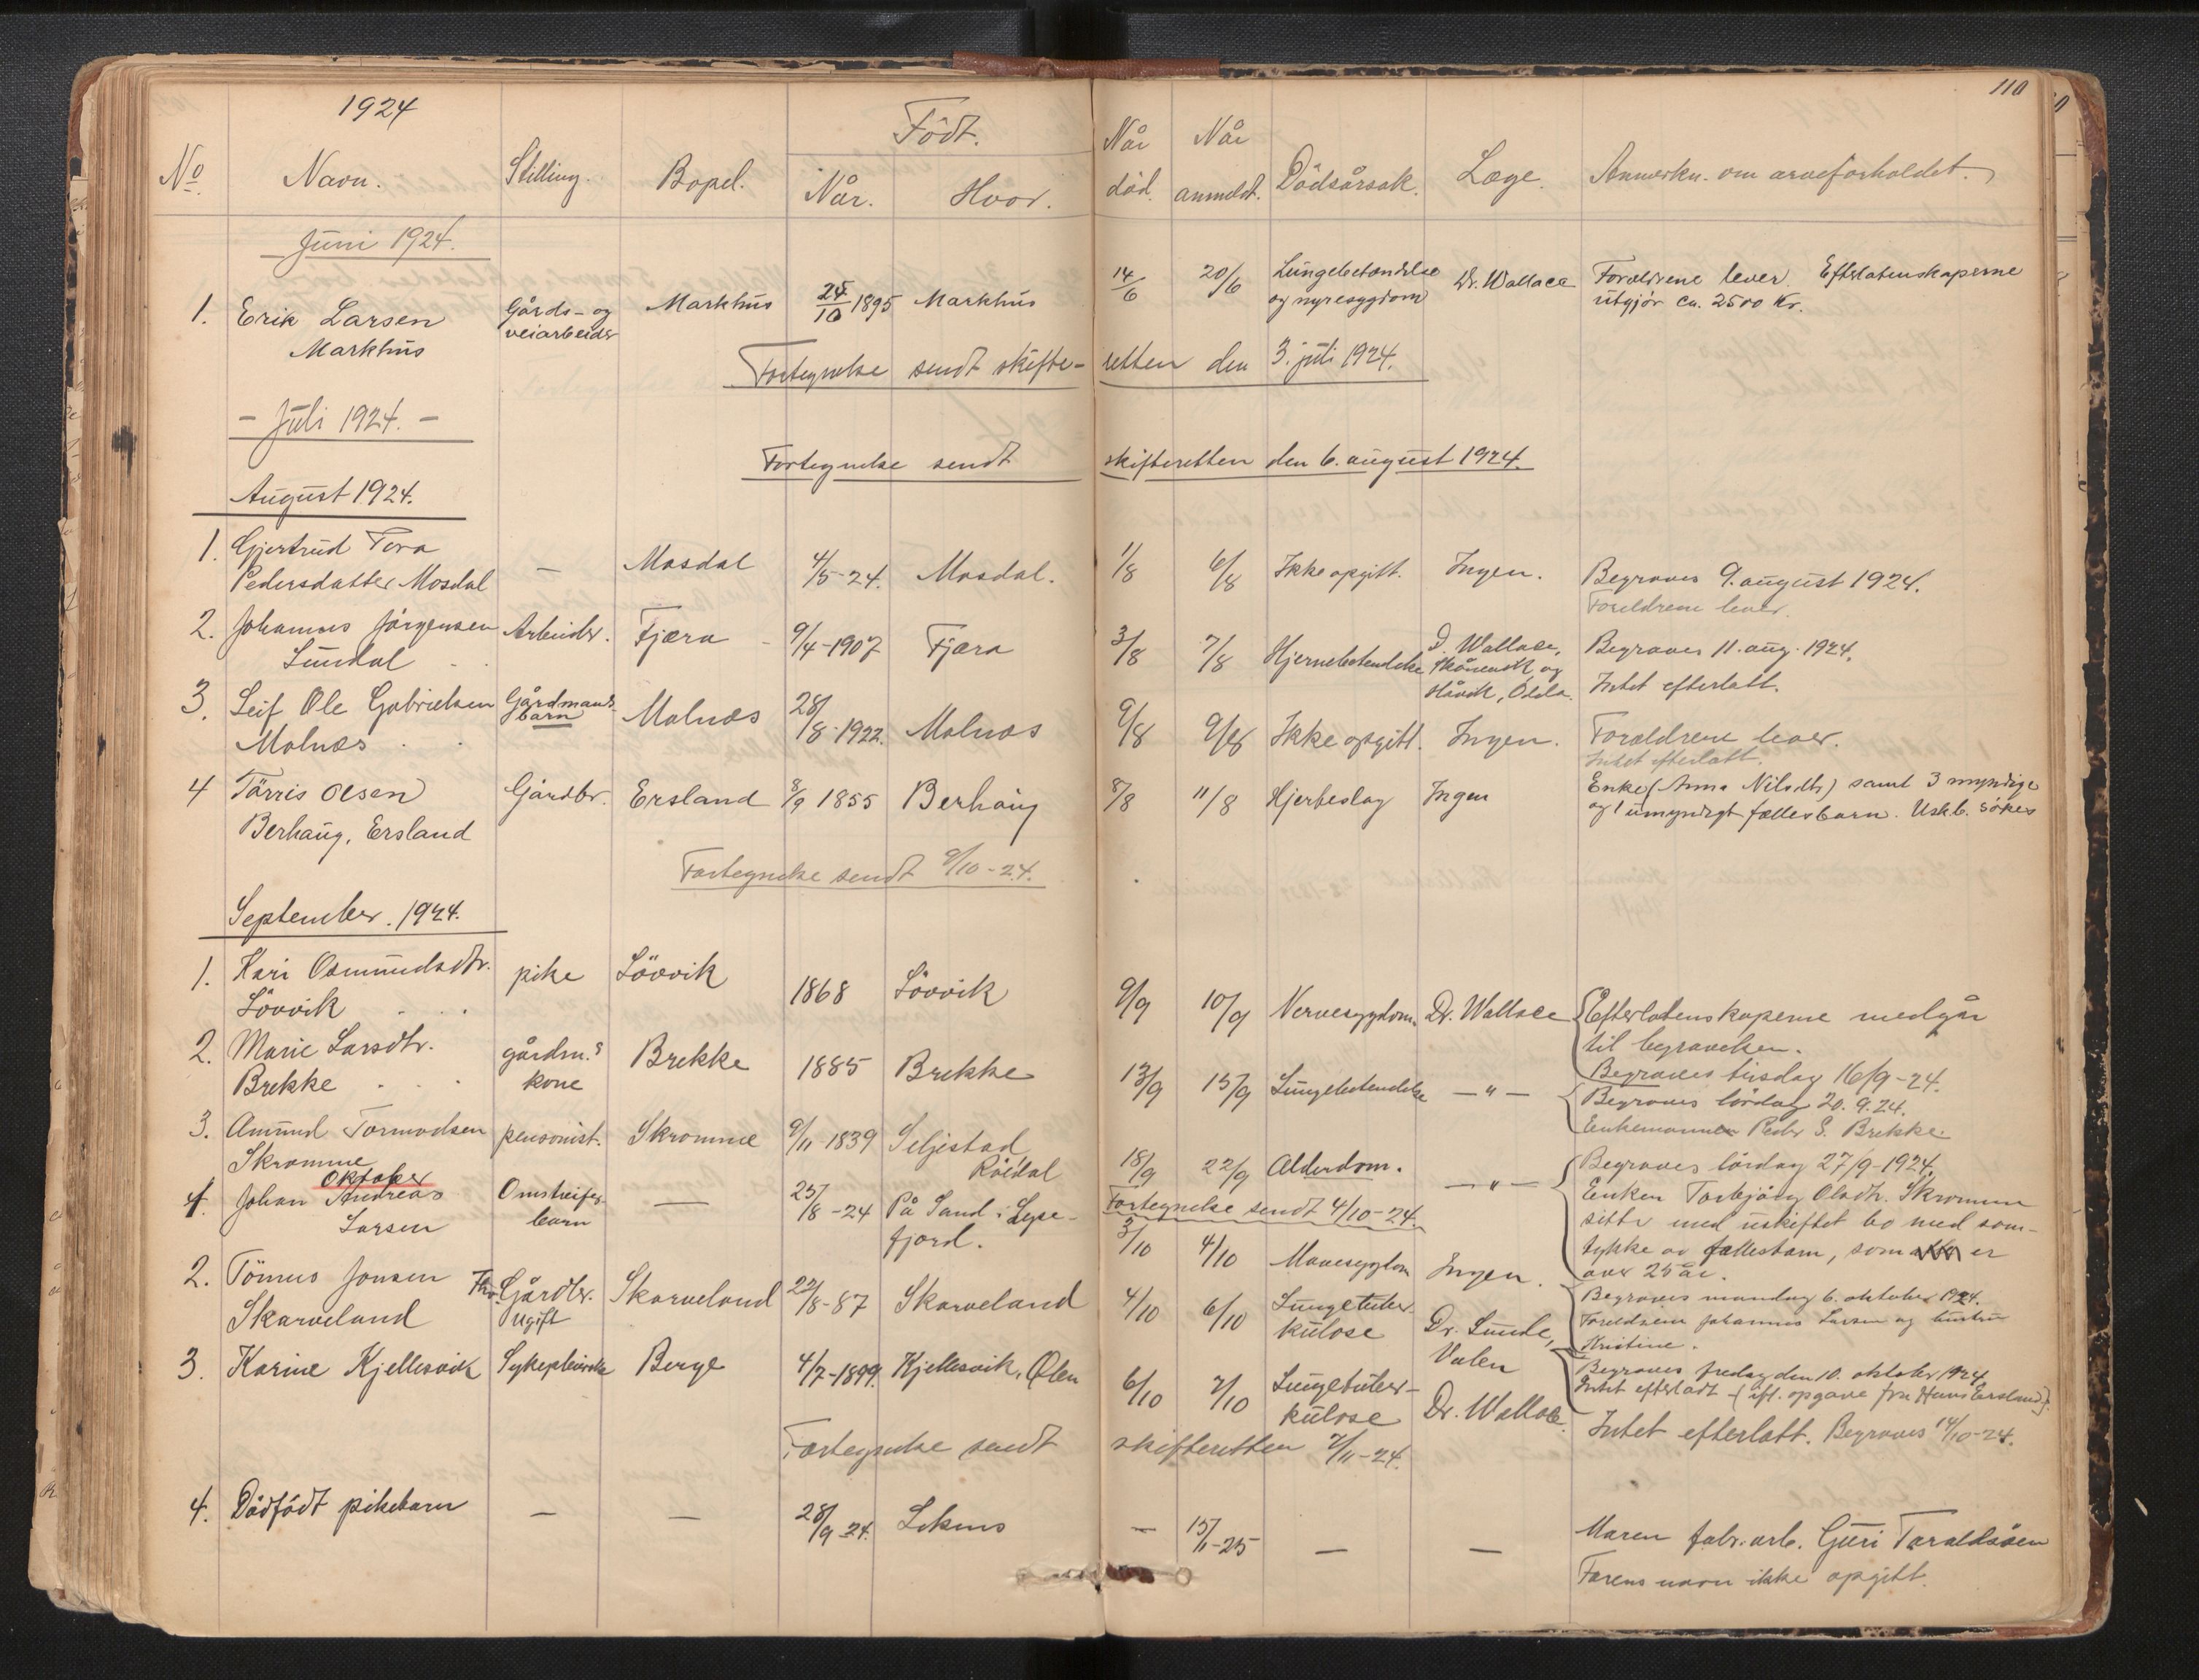 110
1924
Född.
No Navn. Stilling. Bopel. Når. Hvor. Når död. Når anmeldt. Dödsårsak. Læge. Anmerkn. om arveforholdet.
Juni 1924.
1. Erik Larsen Markhus
Gårds- og veiarbeider
Markhus
25/10 1895 Markhus
14/6 20/6 Lungebetændelse og nyresygdom
Dr. Wallace
Forældrene lever. Efterlatenskaperne
utgjör ca. 2500 Kr.
Fortegnelse sendt skifteretten den 3. juli 1924.
- Juli 1924. -
Fortegnelse sendt skifteretten den 6. august 1924.
August 1924.
1. Gjertrud Tora
Pedersdatter Mosdal
— Mosdal 4/5-24. Mosdal.
1/8 6/8 Ikke opgitt. Ingen.
Begraves 9. august 1924.
Foreldrene lever.
2. Johannes Jörgensen
Sundal
Arbeider. Fjæra 9/4-1907 Fjæra
3/8 7/8 Hjernebetendelse
D. Wallace,
og
Odda.
Begraves 11. aug. 1924.
Intet efterlatt.
3. Leif Ole Gabrielsen
Molnes
Gårdmands-
barn
Molnes 28/8-1922. Molnes
9/8 9/8 Ikke opgitt. Ingen.
Foreldrene lever.
Intet efterlatt.
4 Törris Olsen
Berhaug, Ersland
Gårdbr. Ersland 8/9 1855 Berhaug
8/8 11/8 Hjerteslag Ingen
Enke (Anna Nilsdtr) samt 3 myndige
og 1 umyndigt fællesbarn. Usk.b. sökes
Fortegnelse sendt 9/10-24.
September. 1924.
1. Kari Osmundsdtr.
Lövvik
pike Lövvik 1868 Lövvik
9/9 10/9 Nervesygdom. Dr. Wallace
Efterlatenskaperne medgår
til begravelsen.
Begraves tirsdag 16/9-24.
2. Marie Larsdtr.
Brekke
gårdm.s
kone
Brekke 1885 Brekke
13/9 15/9 Lungebetendelse — " —
Begraves lördag 20.9.24.
Enkemannen Peder S. Brekke.
3. Amund Tormodsen
Skromme
pensonist. Skromme 9/11-1839 Seljestad
Röldal
18/9 22/9 Alderdom. — " —
Begraves lördag 27/9-1924.
Enken Torbjörg Olsdtr. Skromme
sitter med uskiftet bo med sam-
tykke av fællesbarn, som er
over 25 år.
Fortegnelse sendt 4/10-24.
Oktober
1. Johan Andreas
Larsen
Omstreifer-
barn
— 25/8-24 På Sand i Lyse-
fjord.
3/10 4/10 Mavesygdom Ingen.
Begraves mandag 6. oktober 1924.
Foreldrene Johannes Larsen og hustru
Kristine.
2. Tönnes Jonsen
Skarveland
Gårdbr.
Ugift
Skarveland 22/8-87 Skarveland
4/10 6/10 Lungetuber-
kulose
Dr. Sunde,
Valen
Begraves fredag den 10. oktober 1924
Intet efterladt - (ift. opgave fra Hans Ersland).
3. Karine Kjellesvik
Sykepleierske Berge 4/7-1899. Kjellesvik, Ölen
6/10 7/10 Lungetuber-
kulose
Dr. Wallace.
Intet efterlatt. Begraves 14/10-24.
Fortegnelse sendt skifteretten 7/11-24.
4. Dödfödt pikebarn
— — 28/9-24. Leknes
— 15/1-25 — —
Moren fabr.arb. Guri Taraldsöen
Farens navn ikke opgitt.